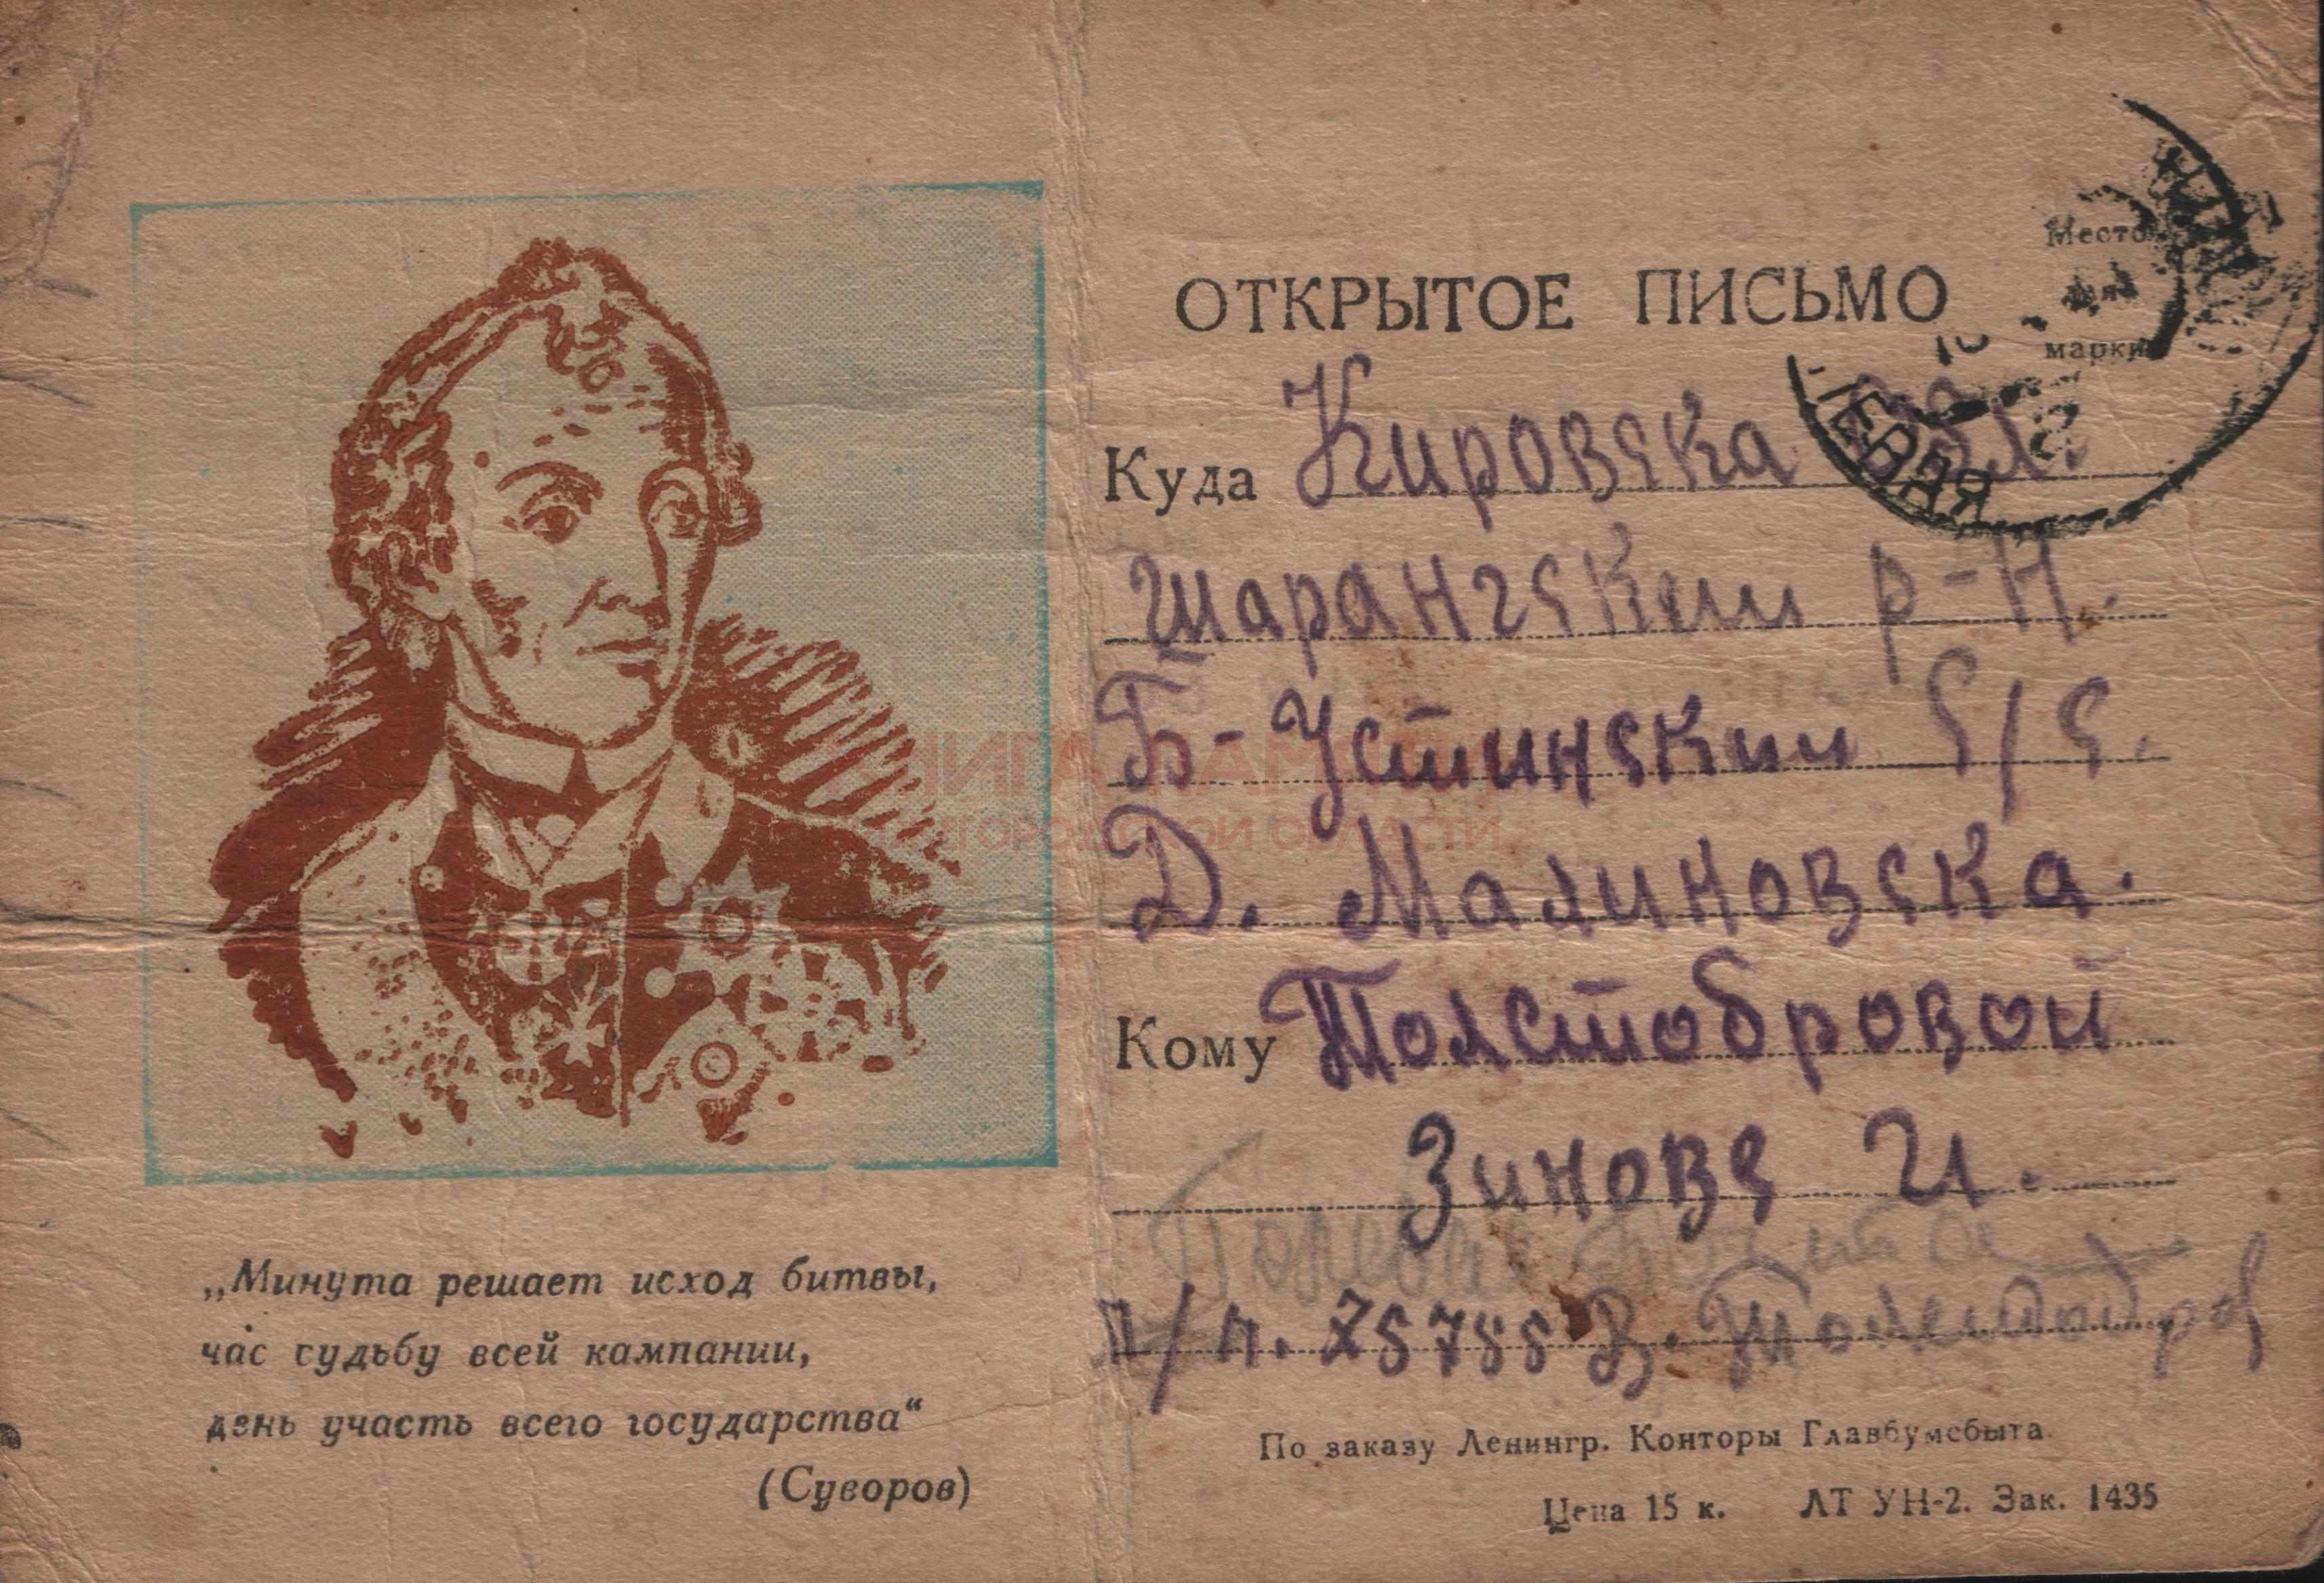 „Минута решает исход битвы,
час судьбу всей кампании,
день участь всего государства“
(Суворов)
ОТКРЫТОЕ ПИСЬМО
Место
для
марки
ПОЛЕВАЯ
Куда Кировска обл.
шарангскии р-н.
Б-Устинскии с/с.
Д. Малиновска.
Кому Толстобровой
Зинове И.
п/п. 75788 В. Толстобров
По заказу Ленингр. Конторы Главбумсбыта
Цена 15 к. ЛТ УН-2. Зак. 1435
КНИГА ПАМЯТИ
НИЖЕГОРОДСКОЙ ОБЛАСТИ